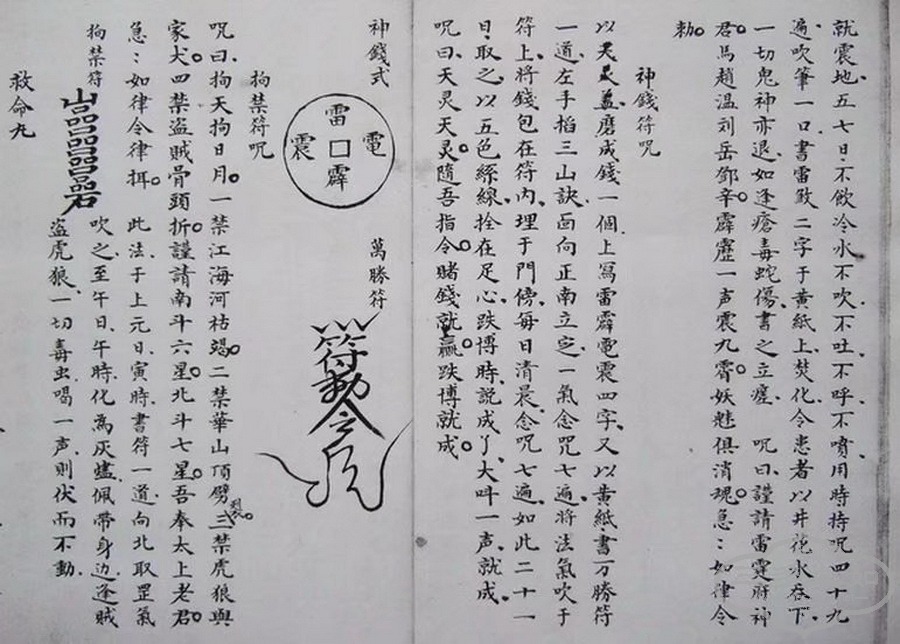 就震地五七日不飲冷水不吹不吐不呼不噴用時持咒四十九
遍吹筆一口書雷敕二字于黄紙上焚化令患者以井花水吞下
一切鬼神亦退如逢瘡毒蛇傷書之立瘥 咒曰謹請雷霆府神
君馬趙温刘岳鄧辛霹靂一声震九霄妖魅俱消魂急:如律令
勅
神錢符咒
以天灵盖磨成錢一個上寫雷霹電震四字又以黄紙書万勝符
一道左手掐三山訣面向正南立定一氣念咒七遍將法氣吹于
符上將錢包在符内埋于門傍每日清晨念咒七遍如此二十一
日取之以五色絲線拴在足心跌博時説成了大呌一声就成
咒曰天灵天灵隨吾指令賭錢就贏跌博就成
神錢式
雷電震霹
萬勝符
符勅令
拘禁符咒
咒曰拘天拘日月一禁江海河枯竭二禁華山頂劈裂三禁虎狼與
家犬四禁盗賊骨頭折謹請南斗六星北斗七星吾奉太上老君
急:如律令律揖 此法于上元日寅時書符一道向北取罡氣
拘禁符
吹之至午日午時化為灰爐佩帶身边逢賊
盗虎狼一切毒虫喝一声則伏而不動
救命丸